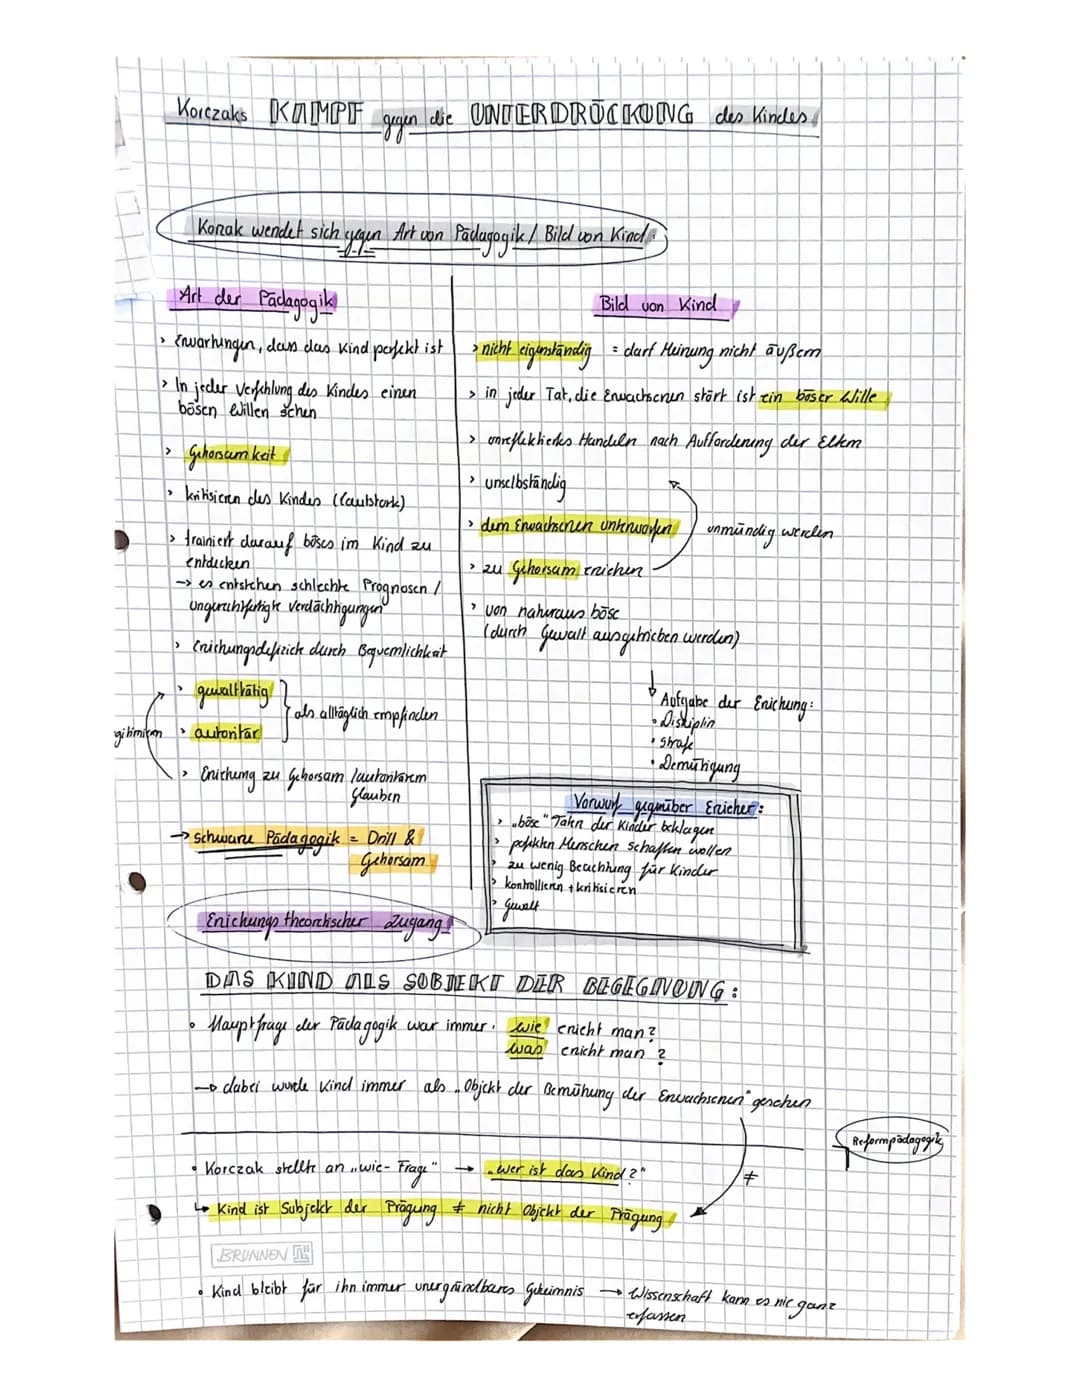 Korczaks KAMPF gegen die UNTERDRÜCKUNG des Kindes
Korzak wendet sich gegen Art von Pädagogik / Bild von Kind:
Art der Pädagogik
> Erwartungen, dass das Kind perfekt ist
> In jeder Verfehlung des Kindes einen
bösen Willen sehen
> Gehorsamkeit
> kritisieren des Kindes (lautstark)
> trainiert darauf böses im Kind zu
entdecken
-> es entstehen schlechte Prognosen /
ungerechtfertigte Verdächtigungen
> Erziehungsdefizich durch Bequemlichkeit
> gewalttätig
> autoritär
als alltäglich empfinden
legitimieren
> Erziehung zu Gehorsam /autoritärem
Glauben
-> schwarze Pädagogik = Drill &
Gehorsam
Bild von Kind
> nicht eigenständig = darf Meinung nicht äußern
> in jeder Tat, die Erwachsenen stört ist ein böser Wille
> unreflektiertes Handeln nach Aufforderung der Eltern
> unselbständig
> dem Erwachsenen unterworfen
> zu Gehorsam erziehen
unmündig werden
> von naturaus böse
(durch Gewalt ausgetrieben werden)
Aufgabe der Erziehung:
• Disziplin
• Strafe
• Demütigung
Vorwurf gegenüber Erzieher:
> „böse" Taten der Kinder beklagen
> perfekten Menschen schaffen wollen
> zu wenig Beachtung für Kinder
> kontrollieren + kritisieren
> Gewalt
Erziehungstheoretischer Zugang
DAS KIND ALS SUBJEKT DER BEGEGNUNG:
• Hauptfrage der Pädagogik war immer: wie erzieht man?
was erzieht man?
-> dabei wurde Kind immer als „Objekt der Bemühung der Erwachsenen" gesehen
Reformpädagogik
• Korczak stellte an „wie-Frage" -> „wer ist das Kind?"
≠
↳ Kind ist Subjekt der Prägung ≠ nicht Objekt der Prägung
BRUNNEN
• Kind bleibt für ihn immer unergründbares Geheimnis -> Wissenschaft kann es nie ganz
erfassen